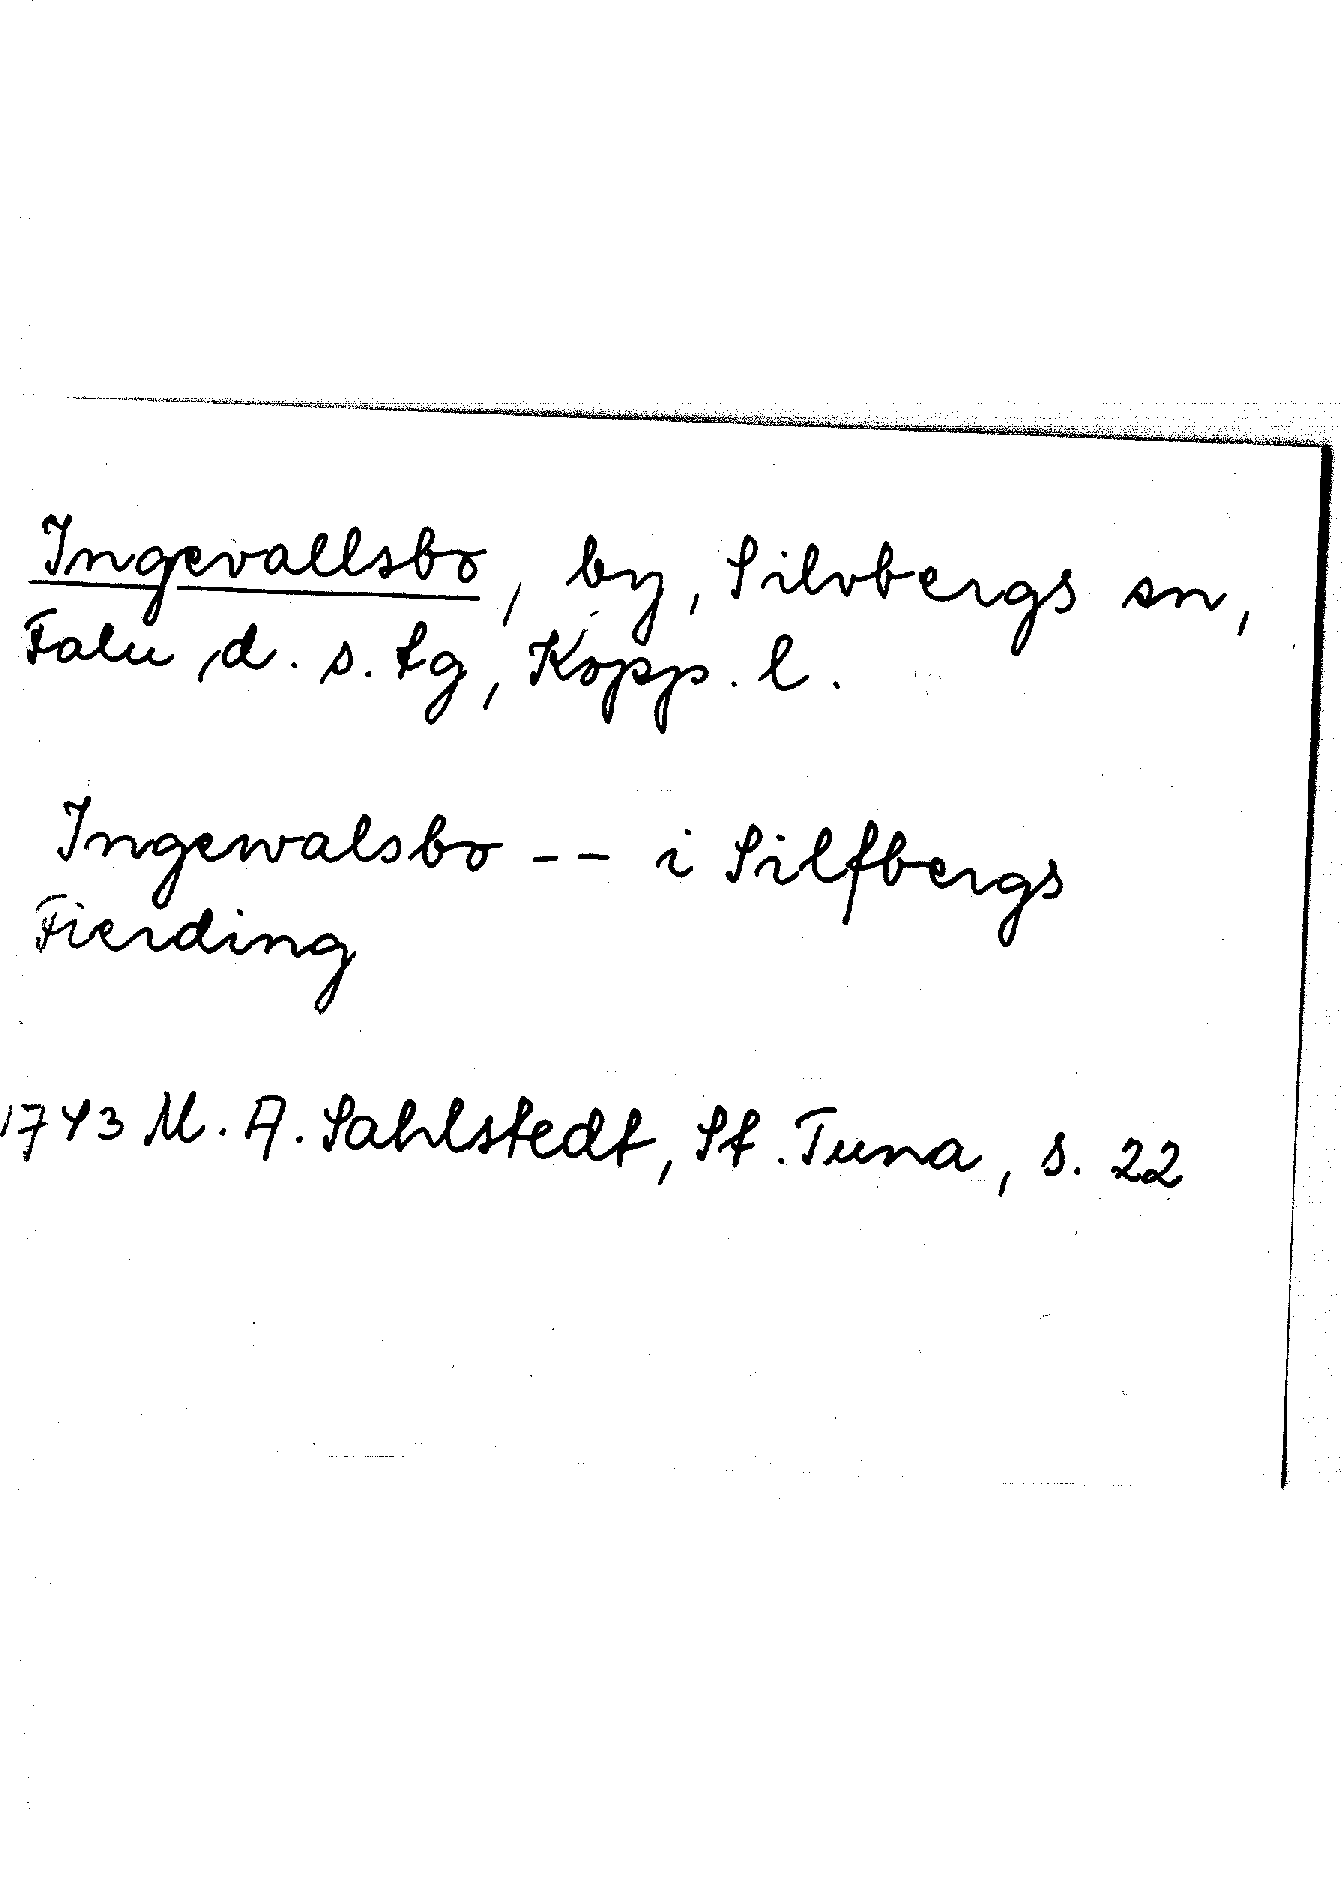 Ingevallsbo, by, Silvbergs sn,
Falu d. s. tg, Kopp. l.
Ingewalsbo -- i Silfbergs
Fierding
1743 M. A. Sahlstedt, St. Tuna, s. 22